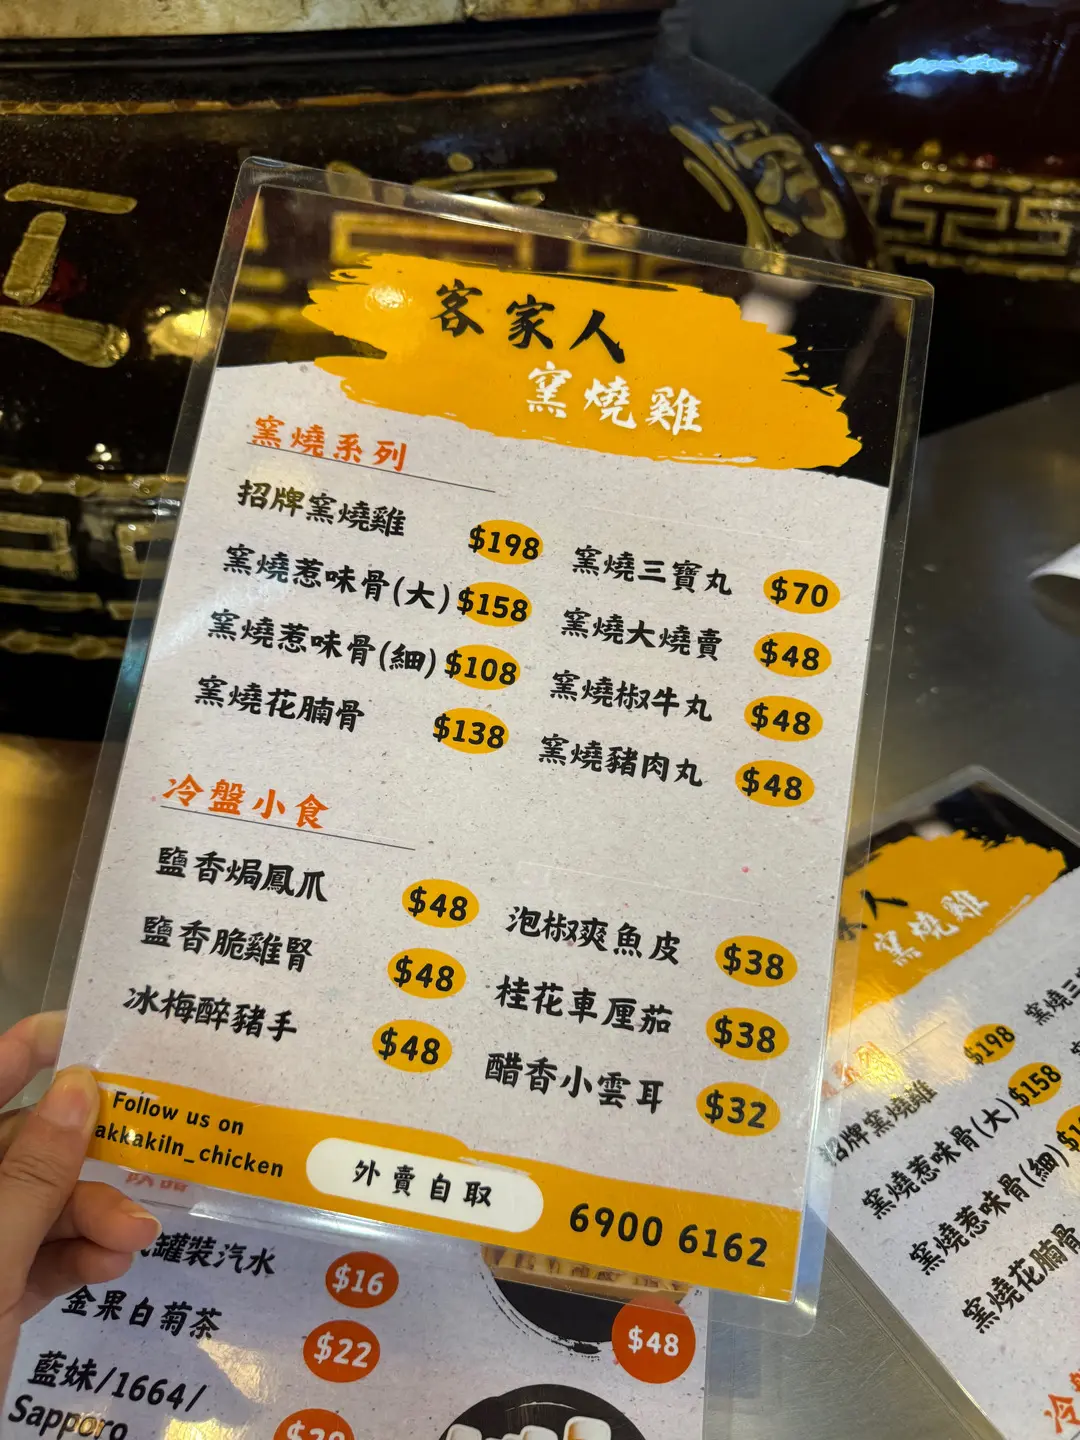 客家人
窯燒雞
窯燒系列
招牌窯燒雞 $198
窯燒惹味骨(大) $158
窯燒惹味骨(細) $108
窯燒花腩骨 $138
窯燒三寶丸 $70
窯燒大燒賣 $48
窯燒椒牛丸 $48
窯燒豬肉丸 $48
冷盤小食
鹽香焗鳳爪 $48
鹽香脆雞腎 $48
冰梅醉豬手 $48
泡椒爽魚皮 $38
桂花車厘茄 $38
醋香小雲耳 $32
Follow us on
akkakiln_chicken
外賣自取
6900 6162
罐裝汽水 $16
金果白菊茶 $22
藍妹/1664/
Sapporo
$48
家人
窯燒雞
招牌窯燒雞 $198
窯燒惹味骨(大) $158
窯燒惹味骨(細)
窯燒花腩骨
窯燒三
冷